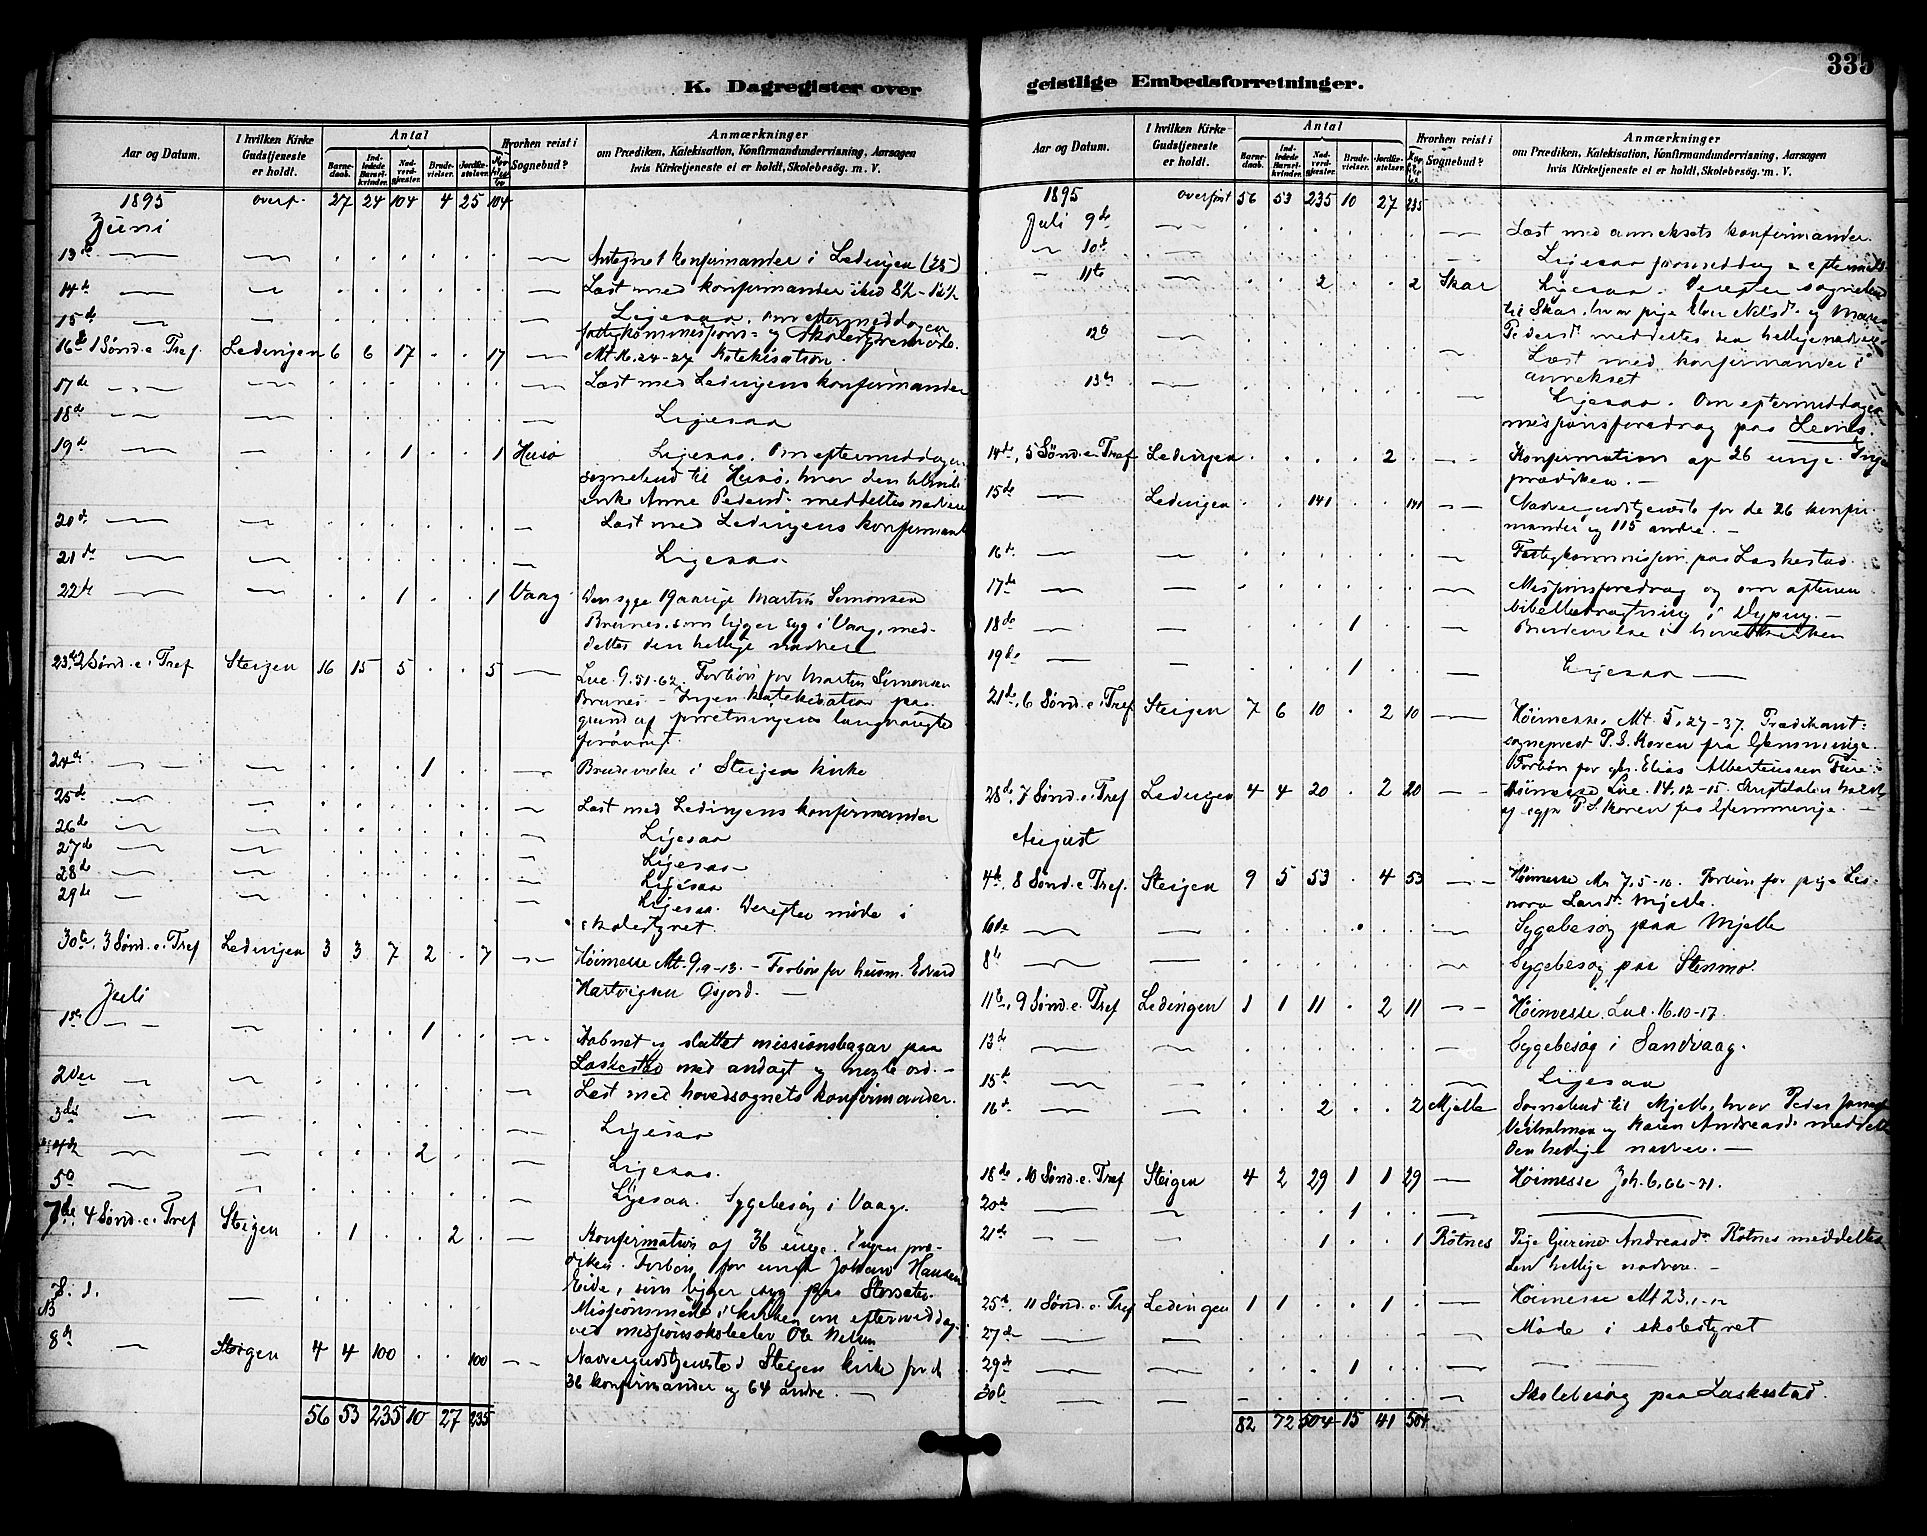 335
K. Dagregister over
geistlige Embedsforretninger.
Aar og Datum.
I hvilken Kirke Gudstjeneste er holdt.
Antal
Barnedaab.
Indledede Barselkvinder.
Nadverdgjester.
Brudevielser.
Jordfæstelser.
Hvorhen reist i Sognebud?
Anmærkninger
om Prædiken, Katekisation, Konfirmandundervisning, Aarsagen
hvis Kirketjeneste ei er holdt, Skolebesøg. m. V.
1895 overf. 27 24 104 4 25 104
Juni
13de Antegnet konfirmander i Ledingen (25)
14de Læst med konfirmander
15de Ligesaa. Om eftermiddagen
fattigkommissions- og skolestyremøde.
16de 1 Sønd. e. Tref. Ledingen 6 6 17 . . 17 Mt 16. 24-27 Katekisation.
17de Læst med Ledingens konfirmander
18de Ligesaa
19de 1 1 Husø Ligesaa. Om eftermiddagen
sognebud til Husø, hvor den blinde
enke Anne Pedersd. meddeltes nadvere
20de Læst med Ledingens konfirmand
21de Ligesaa.
22de 1 1 Vaag Den syge 19 aarige Martin Simonsen
Brunes, som ligger syg i Vaag, med-
deltes den hellige nadvere
23de 2 Sønd. e. Tref Steigen 16 15 5 . . 5 Luc. 9. 51-62. Forbøn for Martin Simonsen
Brunes - Ingen katekisation paa
grund af forretningens langvarighed
forøvrigt.
24de 1 Brudevielse i Steigen kirke
25de Læst med Ledingens konfirmander
26de Ligesaa
27de Ligesaa
28de Ligesaa
29de Ligesaa. Derefter møde i
skolestyret.
30te, 3 Sønd. e. Tref Ledingen 3 3 7 2 . 7 Høimesse Mt. 9, 9-13. - Forbøn for husm. Edvard
Hartvigsen Osjord. -
Juli
1ste 1 Aabnet og sluttet missionsbazar paa
Laskestad med andagt og nogle ord. -
2den Læst med hovedsognets konfirmander.
3die Ligesaa
4de 2 Ligesaa.
5te Ligesaa. Sygebesøg i Vaag.
7de, 4 Sønd. e. Tref Steigen . 1 . . 2 . Konfirmation af 36 unge. Ingen præ-
diken. Forbøn for ungk Johan Hansen
Eide, som ligger syg paa
7. d. Missionsmøde i kirken om eftermiddag
ved missionsskoleelev Ole
8de Steigen 4 4 100 . . 100 Nadvergudstjeneste i Steigen kirke for d
36 konfirmander og 64 andre. -
56 53 235 10 27 235
Aar og Datum.
I hvilken Kirke Gudstjeneste er holdt.
Antal
Barnedaab.
Indledede Barselkvinder.
Nadverdgjester.
Brudevielser.
Jordfæstelser.
Hvorhen reist i Sognebud?
Anmærkninger
om Prædiken, Katekisation, Konfirmandundervisning, Aarsagen
hvis Kirketjeneste ei er holdt, Skolebesøg. m. V.
1895 overført 56 53 235 10 27 235
Juli 9de Læst med anneksets konfirmander.
10de Ligesaa formiddag & eftermidd.
11te 2 2 Skar Ligesaa. Derefter sognebud
til Skar, hvor pige Nilsd. og
Pedersd. meddeltes den hellige nadvere
12te Læst med konfirmander i
annekset
13de Ligesaa. Om eftermiddagen
missionsforedrag paa Leines
14de, 5 Sønd. e. Tref Ledingen . . . . 2 . Konfirmation af 26 unge. Ingen
prædiken. -
15de Ledingen . . 141 . . 141 Nadvergudstjeneste for de 26 konfir-
mander og 115 andre. -
16de Fattigkommission paa Laskestad
17de Missionsforedrag og om aftenen
bibelbetragtning i Dyping. -
18de 1 Brudevielse i hovedkirken
19de 1 Ligesaa
21de, 6 Sønd. e. Tref Steigen 7 6 10 . 2 10 Høimesse. Mt. 5, 27-37. Prædikant:
sogneprest P. S. Koren fra Glemminge.
Forbøn for Elias Albertinssen Fure.
28de, 7 Sønd. e. Tref Ledingen 4 4 20 . 2 20 Høimesse Luc. 14, 12-15. Skriftetalen holdt
og sogpr P S Koren fra Glemminge. -
August
4de, 8 Sønd. e. Tref. Steigen 9 5 53 . 4 53 Høimesse Mr 7, 5-16. Forbøn for pige
Larsd. Mjelle.
6te Sygebesøg paa Mjelle
8de Sygebesøg paa Stenmo.
11te, 9 Sønd. e. Tref Ledingen 1 1 11 . 2 11 Høimesse. Luc. 16, 10-17.
13de Sygebesøg i Sandvaag.
15de Ligesaa
16de 2 2 Mjelle Sognebud til Mjelle, hvor Peder
og Karen Andreasd. meddelt
den hellige nadvere. -
18de, 10 Sønd. e. Tref Steigen 4 2 29 1 1 29 Høimesse Joh. 6, 66-71.
20de 1
21de 1 1 Røtnes Pige Gurine Andreasd. Røtnes meddeltes
den hellige nadvere. -
25de, 11 Sønd. e. Tref Ledingen 1 1 . . 1 . Høimesse Mt 23, 1-12
27de Møde i skolestyret
29de 1
30te Skolebesøg paa Laskestad.
82 72 504 15 41 504